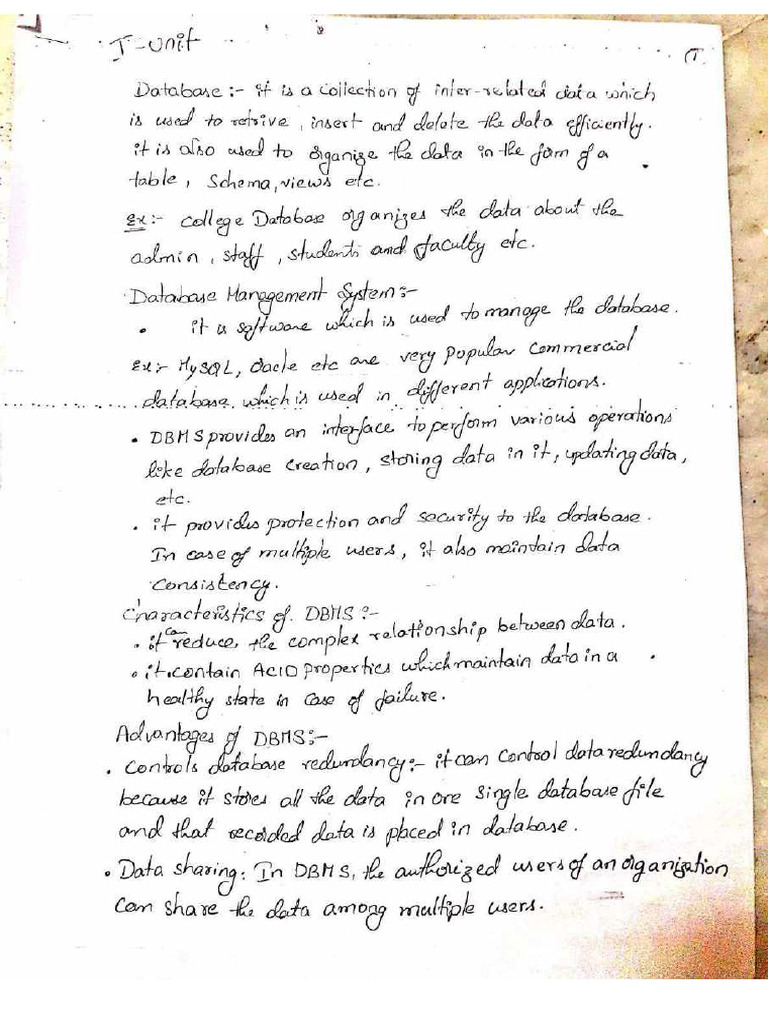 I-Unit
(1
Database:- it is a collection of inter-related data which
is used to retrive, insert and delete the data efficiently.
it is also used to organize the data in the form of a
table, Schema, views etc.
Ex:- College Database organizes the data about the
admin, staff, students and faculty etc.
Database Management System:-
• it is software which is used to manage the database.
Ex:- MySQL, Oacle etc are very popular commercial
database, which is used in different applications.
• DBMS provides an interface to perform various operations
like database creation, storing data in it, updating data,
etc.
• it provides protection and security to the database.
In case of multiple users, it also maintain data
consistency.
Characteristics of DBMS:-
• it can reduce, the complex relationship between data.
• it contain ACID properties which maintain data in a
healthy state in case of failure.
Advantages of DBMS:-
• Controls database redundancy:- it can control data redundancy
because it stores all the data in one single database file
and that recorded data is placed in database.
• Data sharing: In DBMS, the authorized users of an organization
can share the data among multiple users.